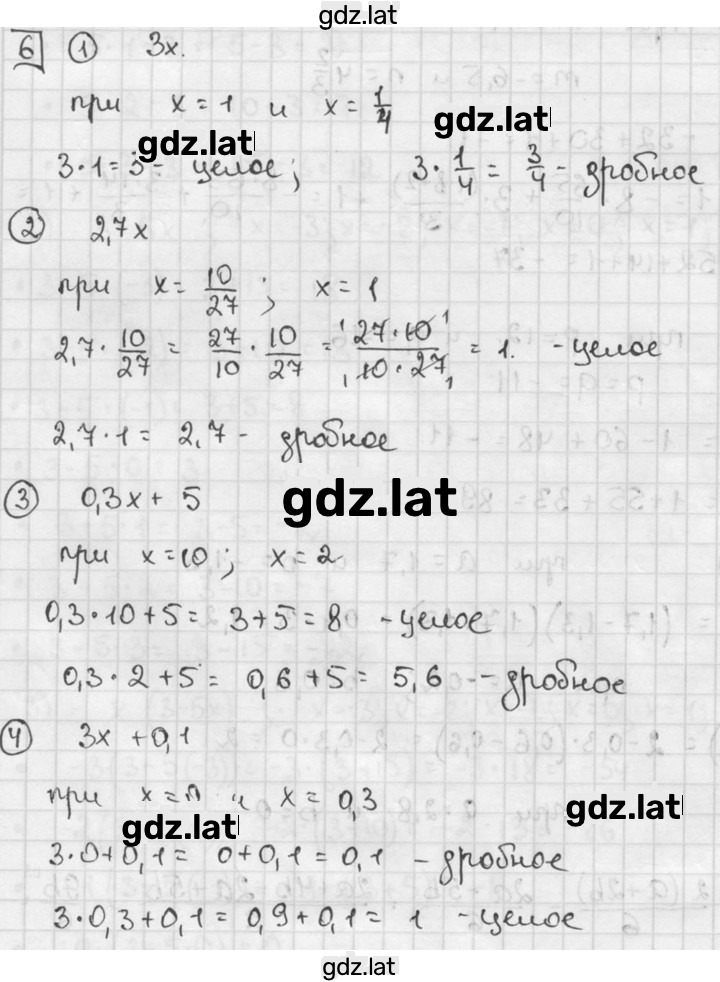 gdz.lat
6 ① 3x.
при x = 1 и x = 1/4
gdz.lat gdz.lat
3·1 = 3 - целое; 3·1/4 = 3/4 - дробное
② 2,7x
при x = 10/27; x = 1
2,7·10/27 = 27/10·10/27 = 27·10/10·27 = 1. - целое
2,7·1 = 2,7 - дробное
gdz.lat
③ 0,3x + 5
при x = 10; x = 2
0,3·10 + 5 = 3 + 5 = 8 - целое
0,3·2 + 5 = 0,6 + 5 = 5,6 - - дробное
④ 3x + 0,1
при x = 0 и x = 0,3
gdz.lat gdz.lat
3·0 + 0,1 = 0 + 0,1 = 0,1 - дробное
3·0,3 + 0,1 = 0,9 + 0,1 = 1 - целое
gdz.lat